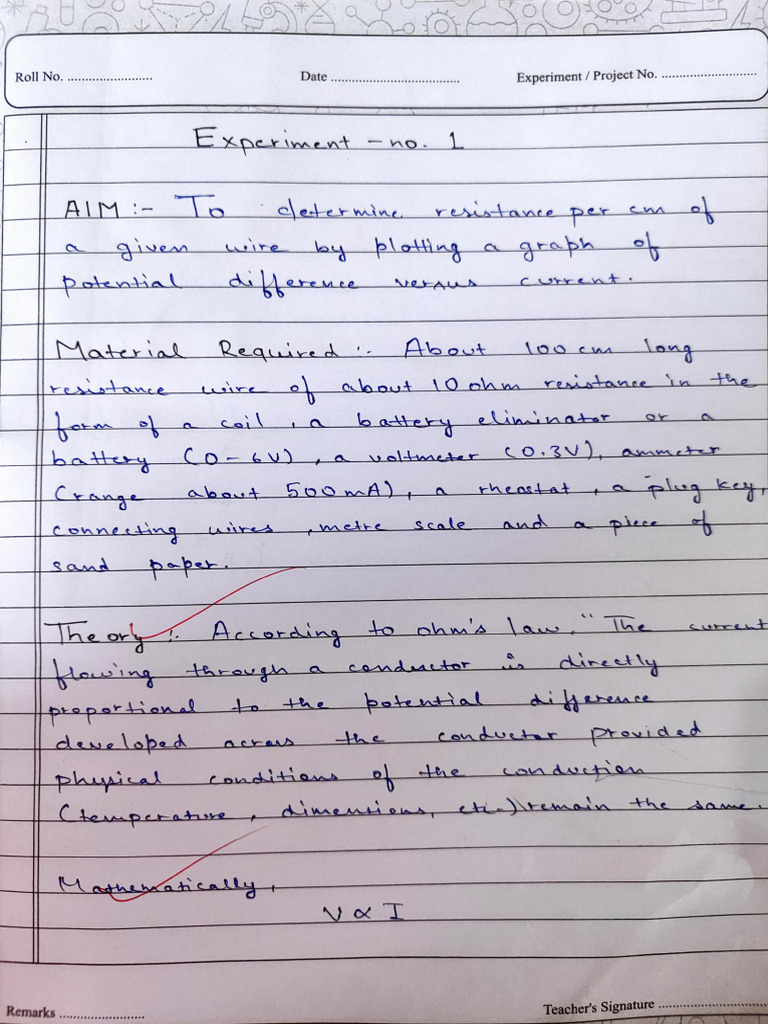 Roll No. ........................ Date .................................... Experiment / Project No. ...........................
Experiment - no. 1
AIM :- To determine resistance per cm of
a given wire by plotting a graph of
potential difference versus current.
Material Required :- About 100 cm long
resistance wire of about 10 ohm resistance in the
form of a coil, a battery eliminator or a
battery (0-6V), a voltmeter (0.3V), ammeter
(range about 500mA), a rheostat, a plug key,
connecting wires, metre scale and a piece of
sand paper.
Theory :. According to ohm's law, "The current
flowing through a conductor is directly
proportional to the potential difference
developed across the conductor provided
physical conditions of the conduction
(temperature, dimensions, etc.) remain the same.
Mathematically,
V ∝ I
Remarks ........................ Teacher's Signature ...............................